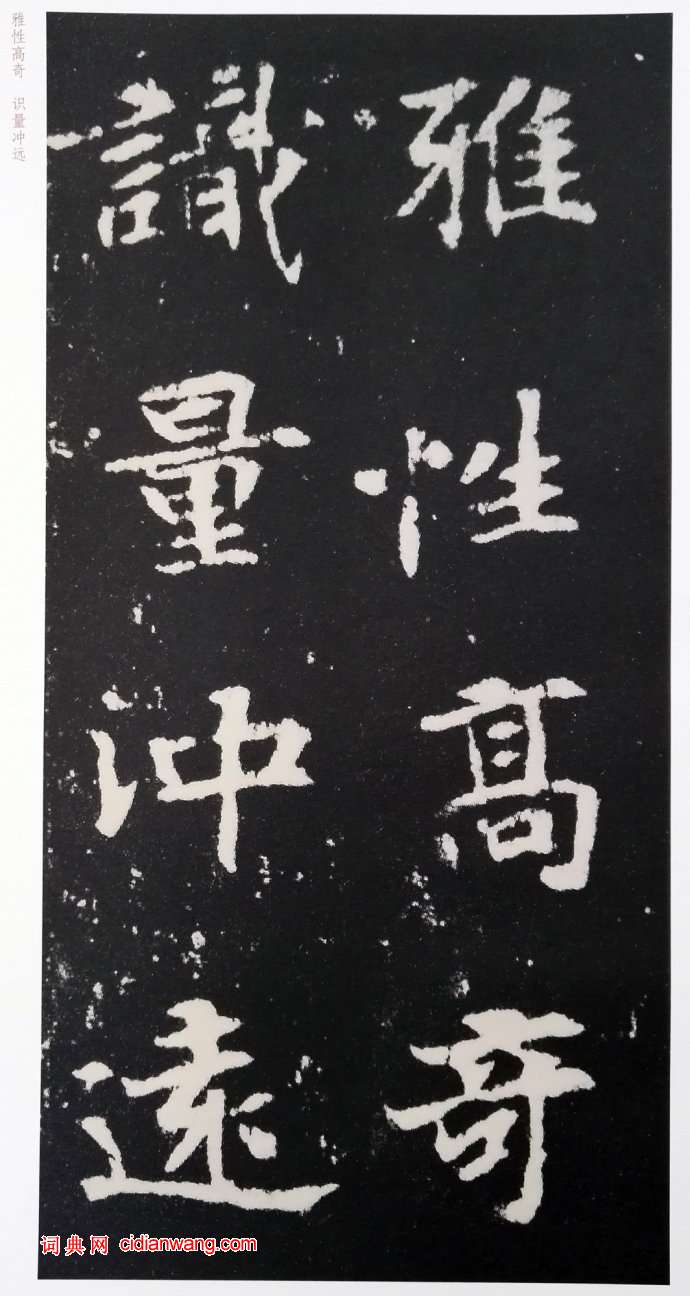 雅性高奇 识量冲远
雅性高奇
識量冲遠
词典网 cidianwang.com